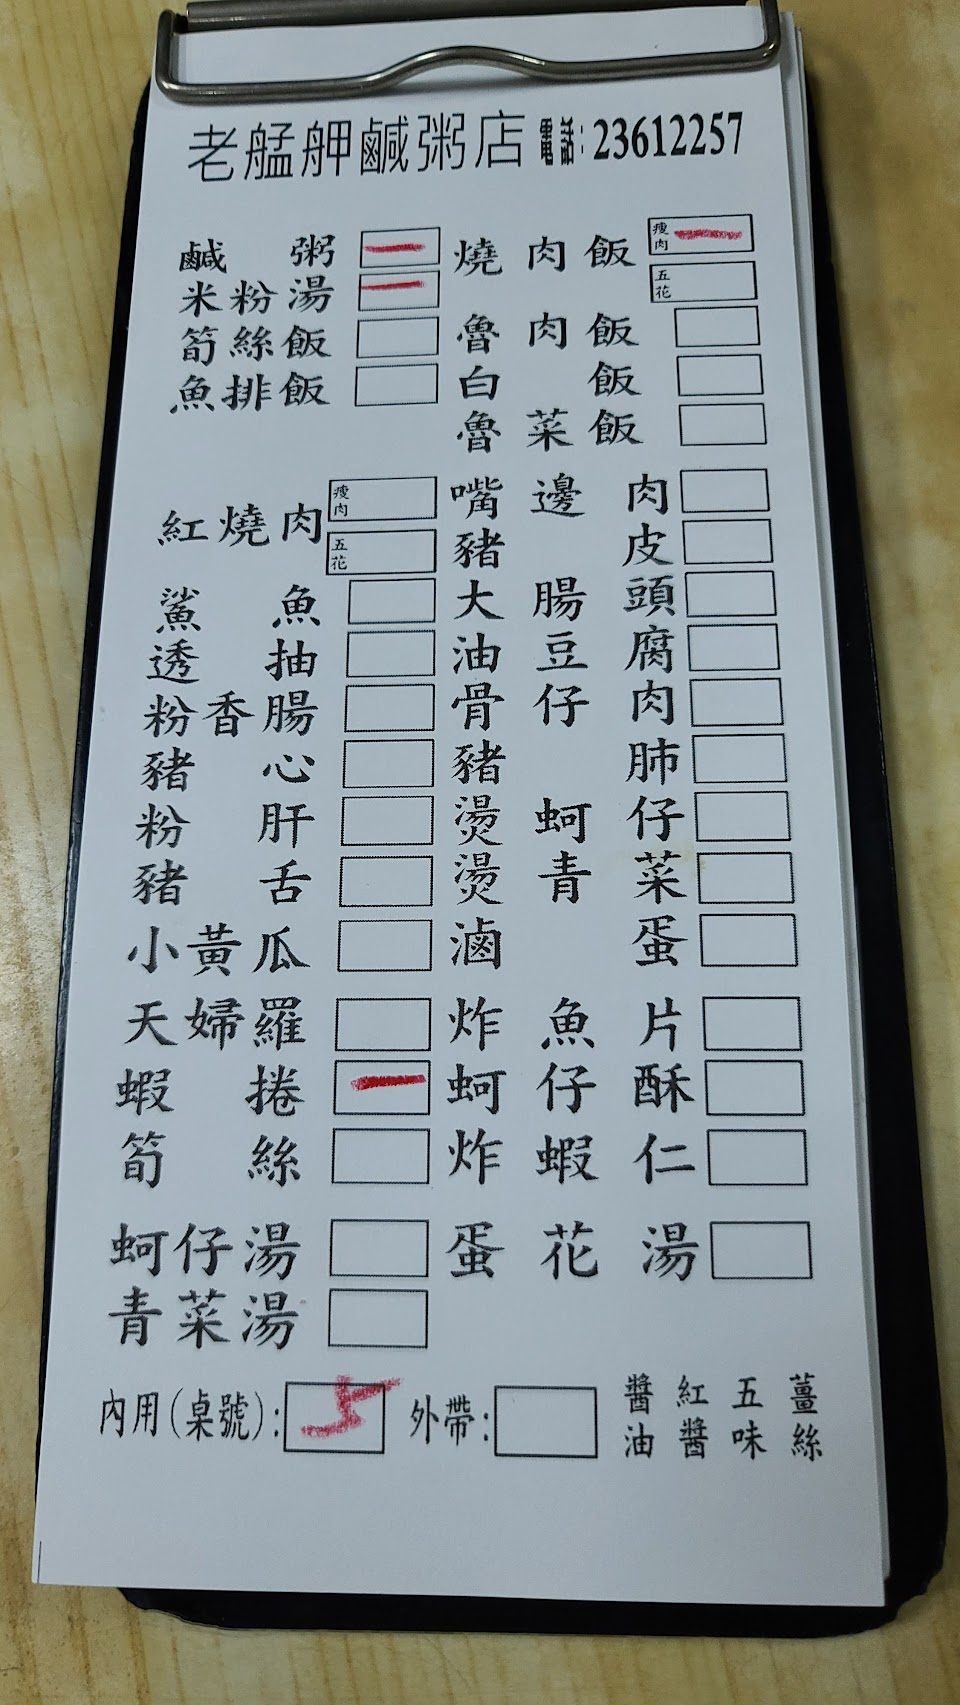 老艋舺鹹粥店 電話:23612257
鹹粥 一 燒肉飯 瘦肉 一
五花
米粉湯 一
筍絲飯 魯肉飯
魚排飯 白飯
魯菜飯
紅燒肉 瘦肉 嘴邊肉
五花 豬皮
鯊魚 大腸頭
透抽 油豆腐
粉香腸 骨仔肉
豬心 豬肺
粉肝 燙蚵仔
豬舌 燙青菜
小黃瓜 滷蛋
天婦羅 炸魚片
蝦捲 一 蚵仔酥
筍絲 炸蝦仁
蚵仔湯 蛋花湯
青菜湯
內用(桌號): 5 外帶: 醬油 紅醬 五味 薑絲